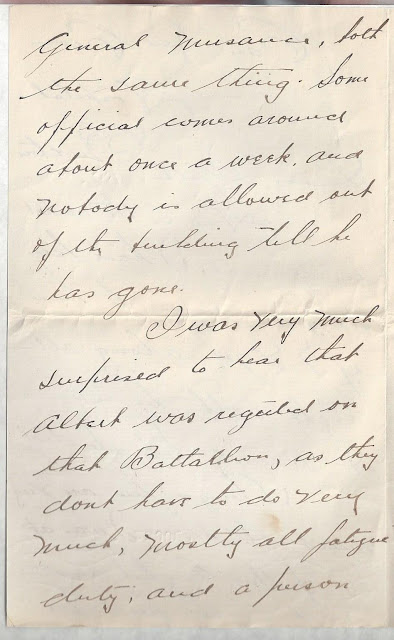 General Nusance, both
the same thing. Some
official comes around
about once a week, and
nobody is allowed out
of the building till he
has gone.
I was very much
surprised to hear that
Albert was rejected on
that Battallion, as they
dont have to do very
much, mostly all fatigue
duty, and a person